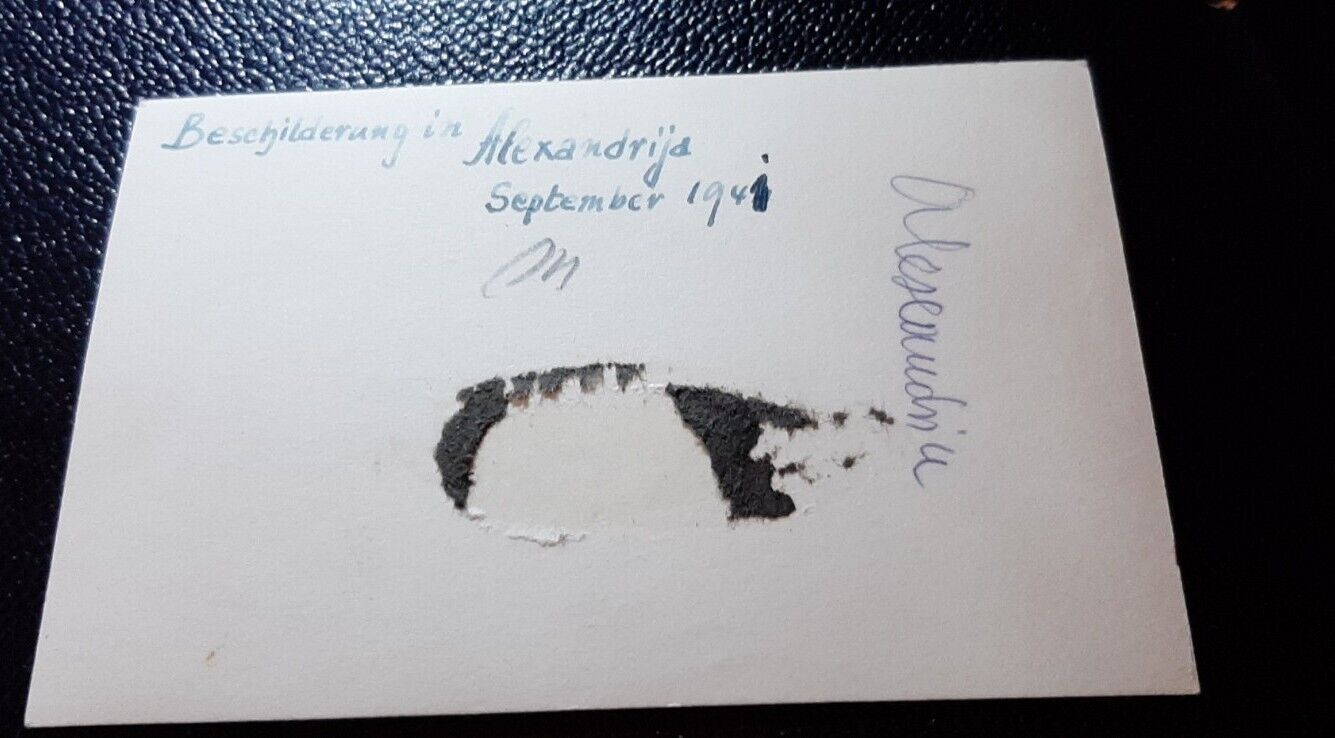 Beschilderung in Alexandrija
September 1941
Alexandria